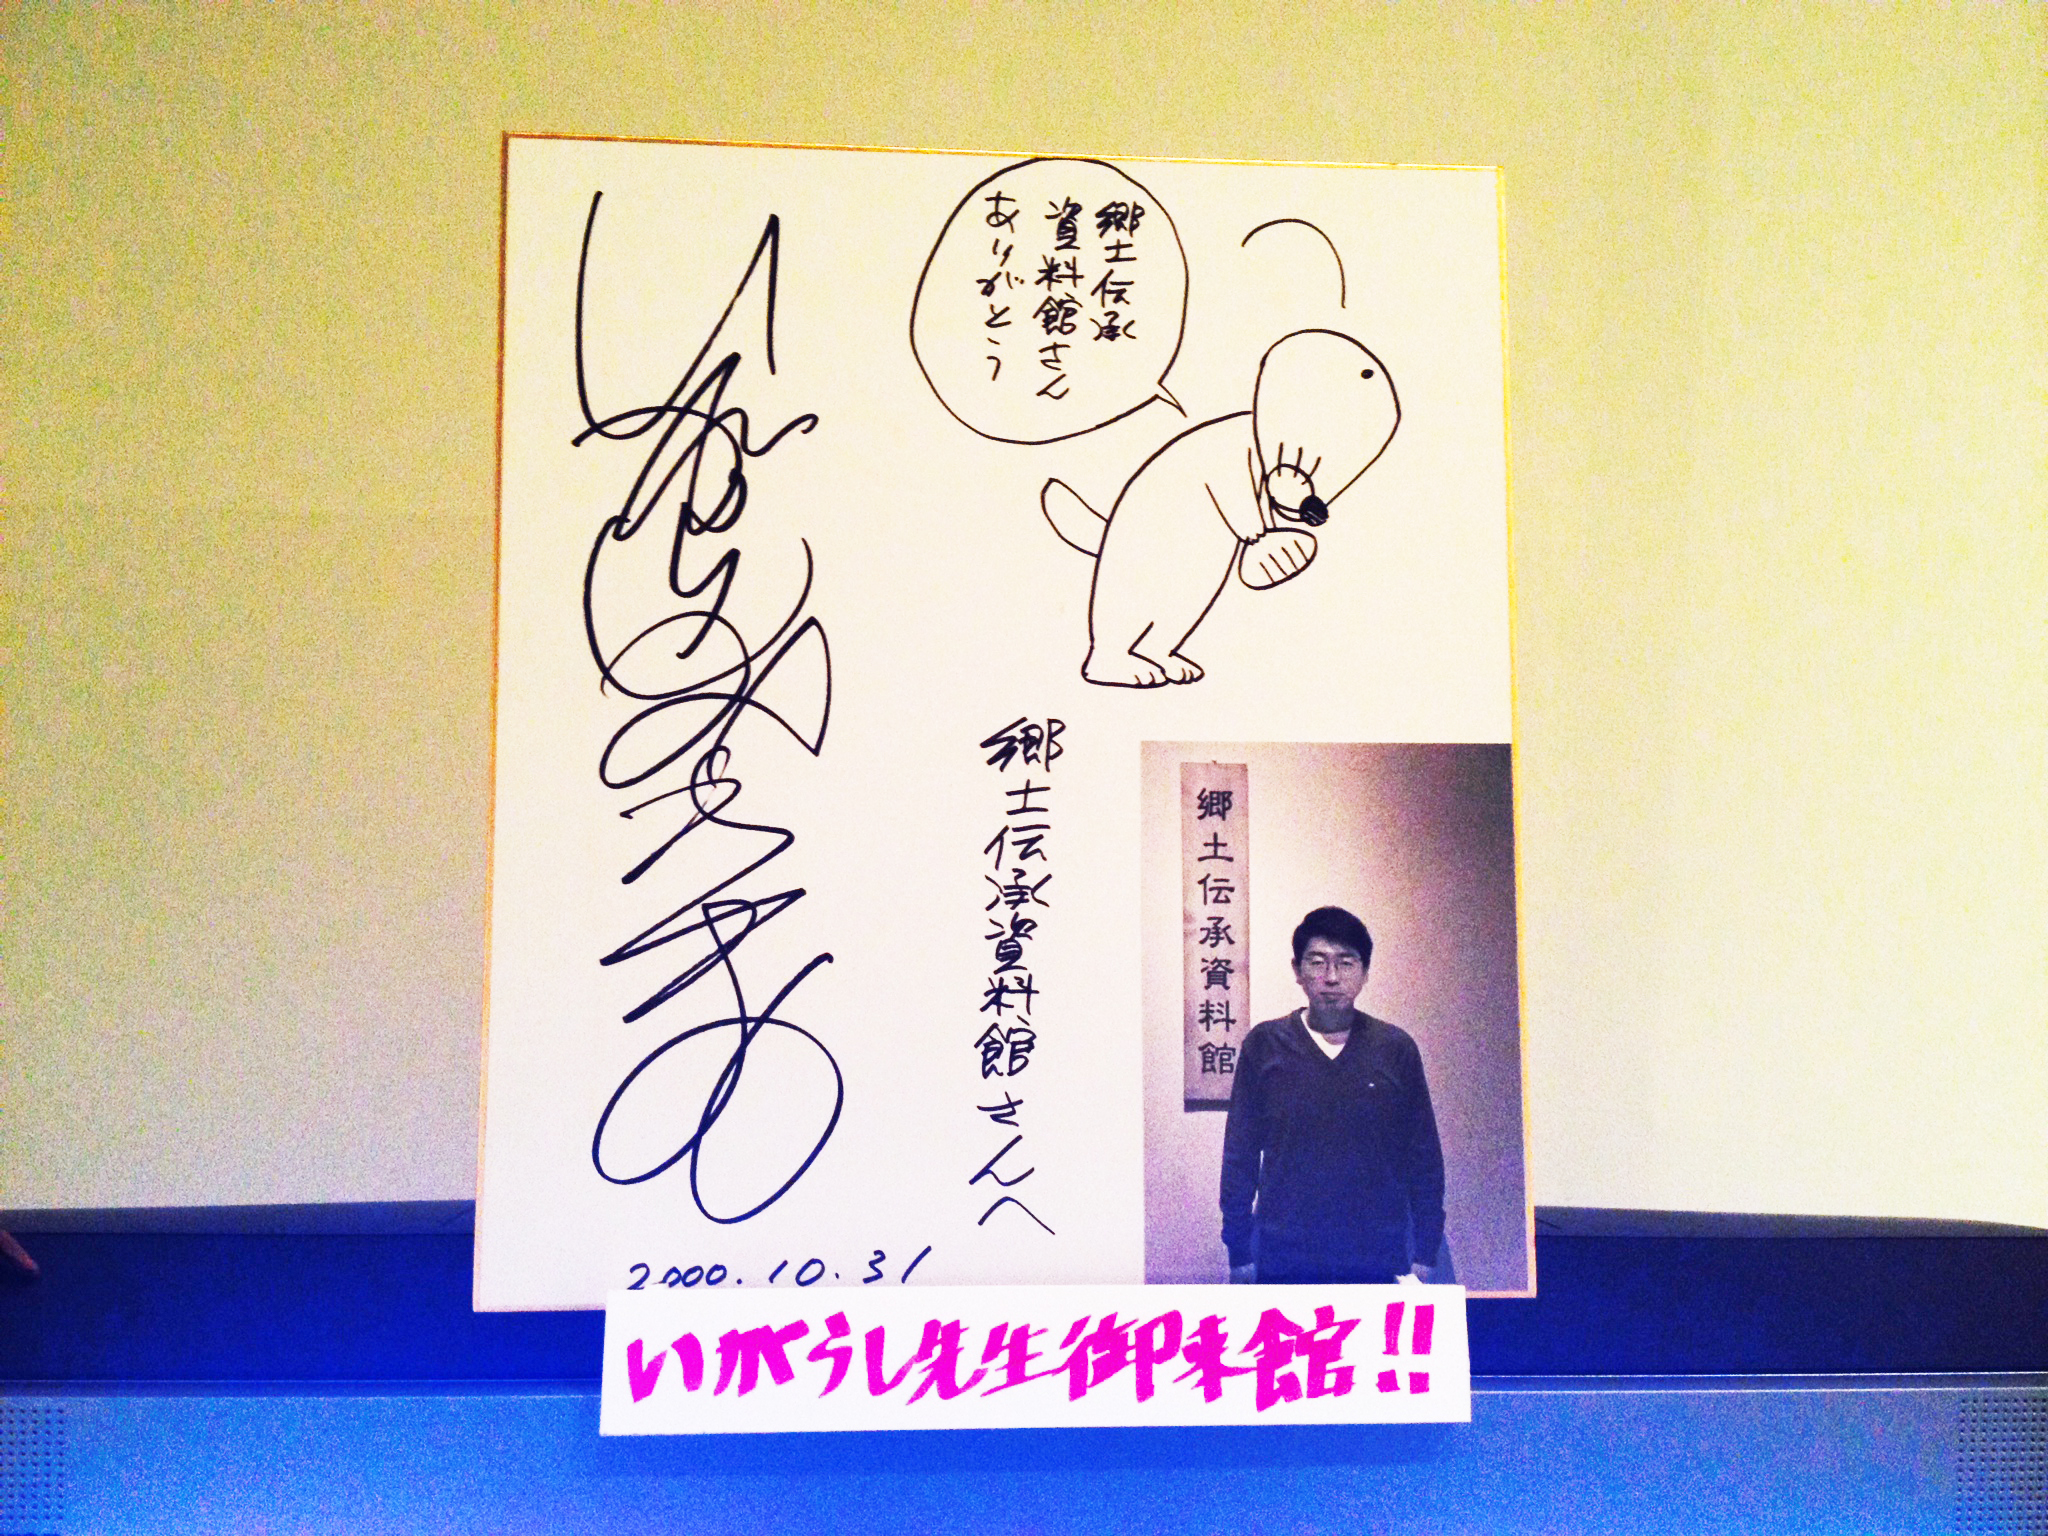 郷土伝承
資料館さん
ありがとう
郷土伝承資料館さんへ
郷土伝承資料館
2000.10.31
いがらし先生御来館!!